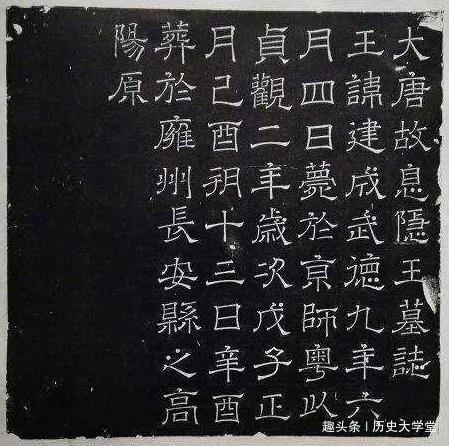 大唐故息隱王墓誌
王諱建成武德九年六
月四日薨於京師粵以
貞觀二年歲次戊子正
月己酉朔十三日辛酉
葬於雍州長安縣之高
陽原
趣头条 | 历史大学堂